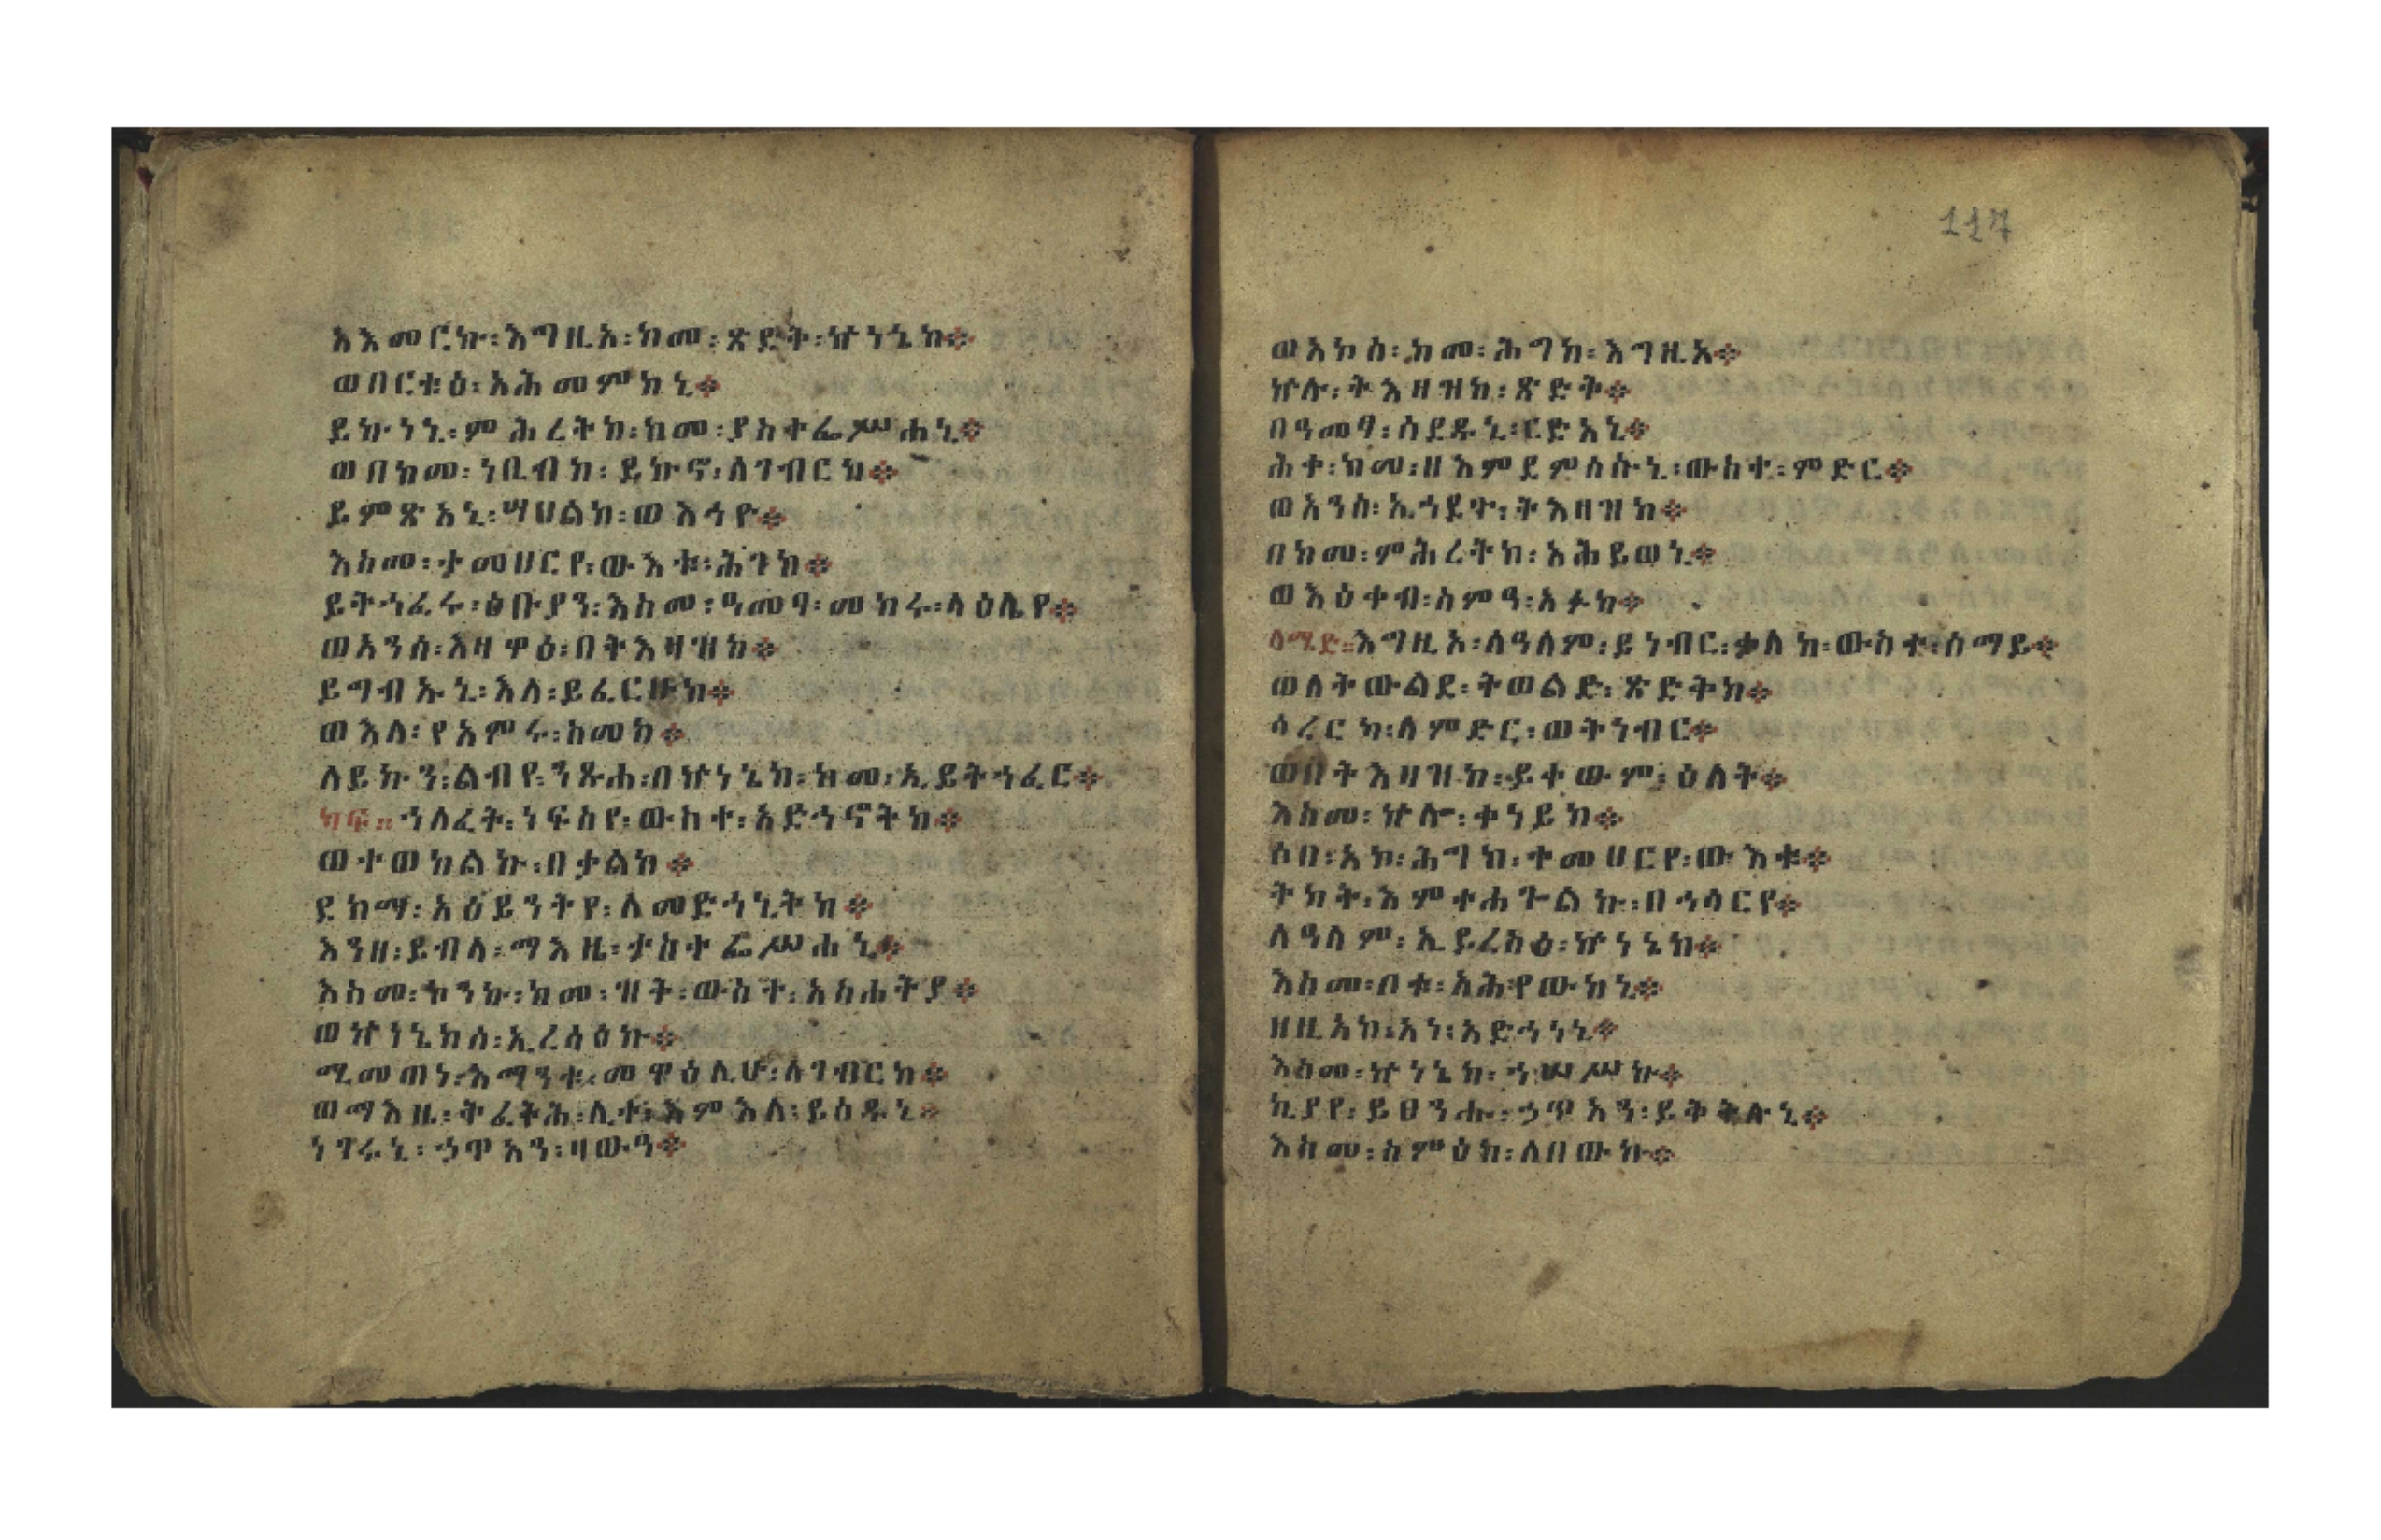 አእመርኩ፡እግዚአ፡ከመ፡ጽድት፡ኵነኔከ፨
ወበርቱዕ፡አሕመምከኒ፨
ይኩነኒ፡ምሕረትከ፡ከመ፡ያስተፌሥሐኒ፨
ወበከመ፡ነቢብከ፡ይኩኖ፡ለገብርከ፨
ይምጽአኒ፡ሣህልከ፡ወእሕዮ፨
እስመ፡ተመሀርየ፡ውእቱ፡ሕግከ፨
ይትኀፈሩ፡ዕቡያን፡እስመ፡ዓመፃ፡መከሩ፡ላዕሌየ፨
ወአንሰ፡እዛዋዕ፡በትእዛዝከ፨
ይግብኡኒ፡እለ፡ይፈርሁከ፨
ወእለ፡የአምሩ፡ስመከ፨
ለይኩን፡ልብየ፡ንጹሐ፡በኵነኔከ፡ከመ፡ኢይትኀፈር፨
ካፍ፡፡ኀለፈት፡ነፍስየ፡ውስተ፡አድኅኖትከ፨
ወተወከልኩ፡በቃልከ፨
ደክማ፡አዕይንትየ፡ለመድኀኒትከ፨
እንዘ፡ይብላ፡ማእዜ፡ታስተፌሥሐኒ፨
እስመ፡ኮንኩ፡ከመ፡ዝት፡ውስተ፡አስሐትያ፨
ወኵነኔከሰ፡ኢረሳዕኩ፨
ሚመጠነ፡እማንቱ፡መዋዕሊሁ፡ለገብርከ፨
ወማእዜ፡ትፈትሕ፡ሊተ፡እምእለ፡ይሰዱኒ፨
ነገሩኒ፡ኃጥአን፡ዛውዓ፨
117
ወአኮሰ፡ከመ፡ሕግከ፡እግዚአ፨
ኵሉ፡ትእዛዝከ፡ጽድት፨
በዓመፃ፡ሰደዱኒ፡ርድአኒ፨
ሕተ፡ከመ፡ዘእምደምሰሱኒ፡ውስተ፡ምድር፨
ወአንሰ፡ኢኀደጉ፡ትእዛዝከ፨
በከመ፡ምሕረትከ፡አሕይወኒ፨
ወእዕቀብ፡ስምዓ፡አፉከ፨
ላሜድ፡፡እግዚአ፡ለዓለም፡ይነብር፡ቃለከ፡ውስተ፡ሰማይ፨
ወለትውልደ፡ትወልድ፡ጽድትከ፨
ሳረርካ፡ለምድር፡ወትነብር፨
ወበትእዛዝከ፡ይተውም፡ዕለት፨
እስመ፡ኵሎ፡ቀነይከ፨
ሶበ፡አኮ፡ሕግከ፡ተመሀርየ፡ውእቱ፨
ትካት፡እምተሐጐልኩ፡በኀሳርየ፨
ለዓለም፡ኢይረስዕ፡ኵነኔከ፨
እስመ፡ቦቱ፡አሕየውከኒ፨
ዘዚአከ፡አነ፡አድኅነኒ፨
እስመ፡ኵነኔከ፡ኀሠሥኩ፨
ኪያየ፡ይፀንሑ፡ኃጥአን፡ይቅትሉኒ፨
እስመ፡ስምዕከ፡ለበውኩ፨